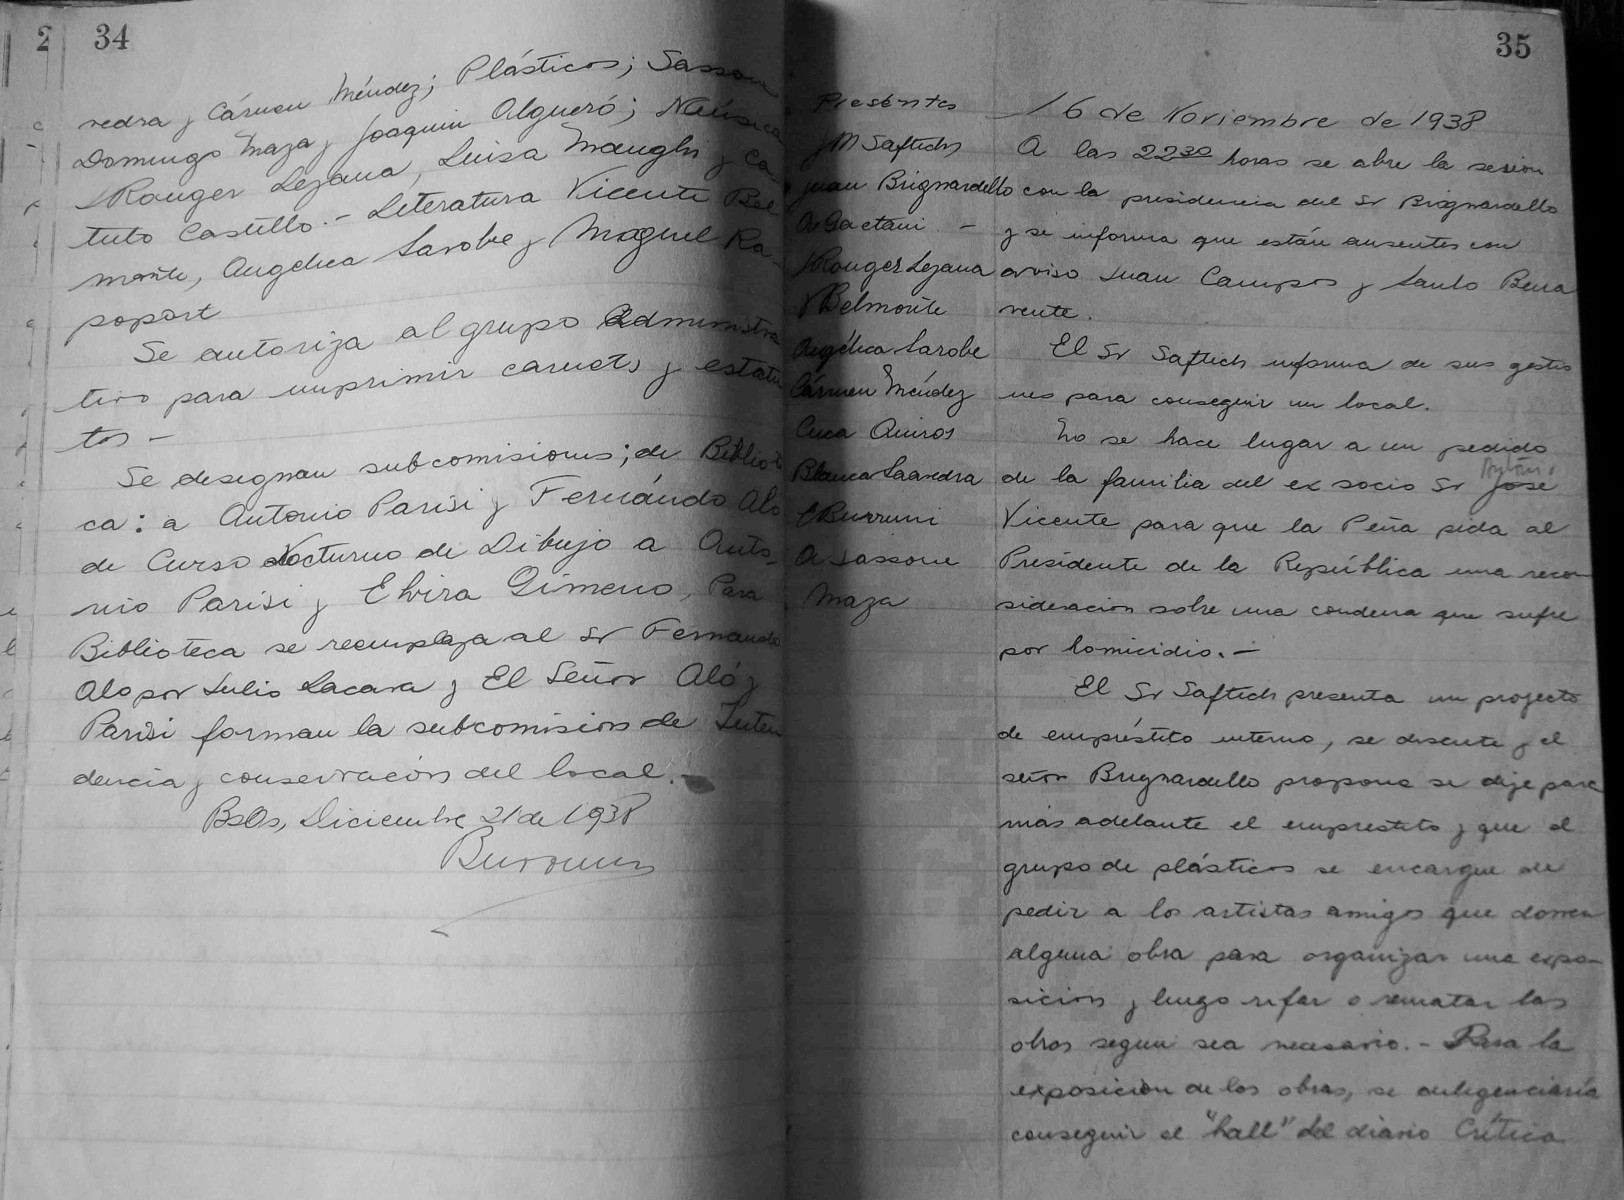 2
34
vedra y Cármen Méndez; Plásticos; Sassone
Domingo Maza y Joaquin Algueró; Música
Rouger Lezana, Luisa Maughi y Ca
tulo Castillo.- Literatura Vicente Bel
monte, Angélica Larobe y Maguel Ra-
poport
Se autoriza al grupo Administra
tivo para imprimir carnets y estatu
tos -
Se designan subcomisiones; de Bibliote
ca: a Antonio Parisi y Fernándo Aló
de Curso Nocturno de Dibujo a Anto-
nio Parisi y Elvira Gimeno, Para
Biblioteca se reemplaza al Sr Fernando
Alo por Julio Lacava y El Señor Aló y
Parisi forman la subcomision de Inten
dencia y conservación del local.-
BsAs, Diciembre 21 de 1938
Burruni
35
Presentes
J M Saftich
Juan Brignardello
A Gaetani -
J Rouger Lezana
V Belmonte
Angélica Larobe
Cármen Méndez
Cuca Quiros
Blanca Saavedra
E Burruni
A Sassone
Maza
16 de Noviembre de 1938
A las 22 30 horas se abre la sesion
con la presidencia del Sr Brignardello
y se informa que están ausentes con
aviso Juan Campos y Santo Bena
vente.
El Sr Saftich informa de sus gestio
nes para conseguir un local.
No se hace lugar a un pedido
de la familia del ex socio Sr José
Vicente para que la Peña pida al
Presidente de la República una recon
sideracion sobre una condena que sufre
por homicidio.-
El Sr Saftich presenta un proyecto
de empréstito interno, se discute y el
señor Brignardello propone se deje para
más adelante el emprestito y que el
grupo de plásticos se encargue de
pedir a los artistas amigos que donen
alguna obra para organizar una expo-
sicion y luego rifar o rematar las
obras segun sea necesario.- Para la
exposición de las obras, se diligenciaría
conseguir el "hall" del diario Crítica